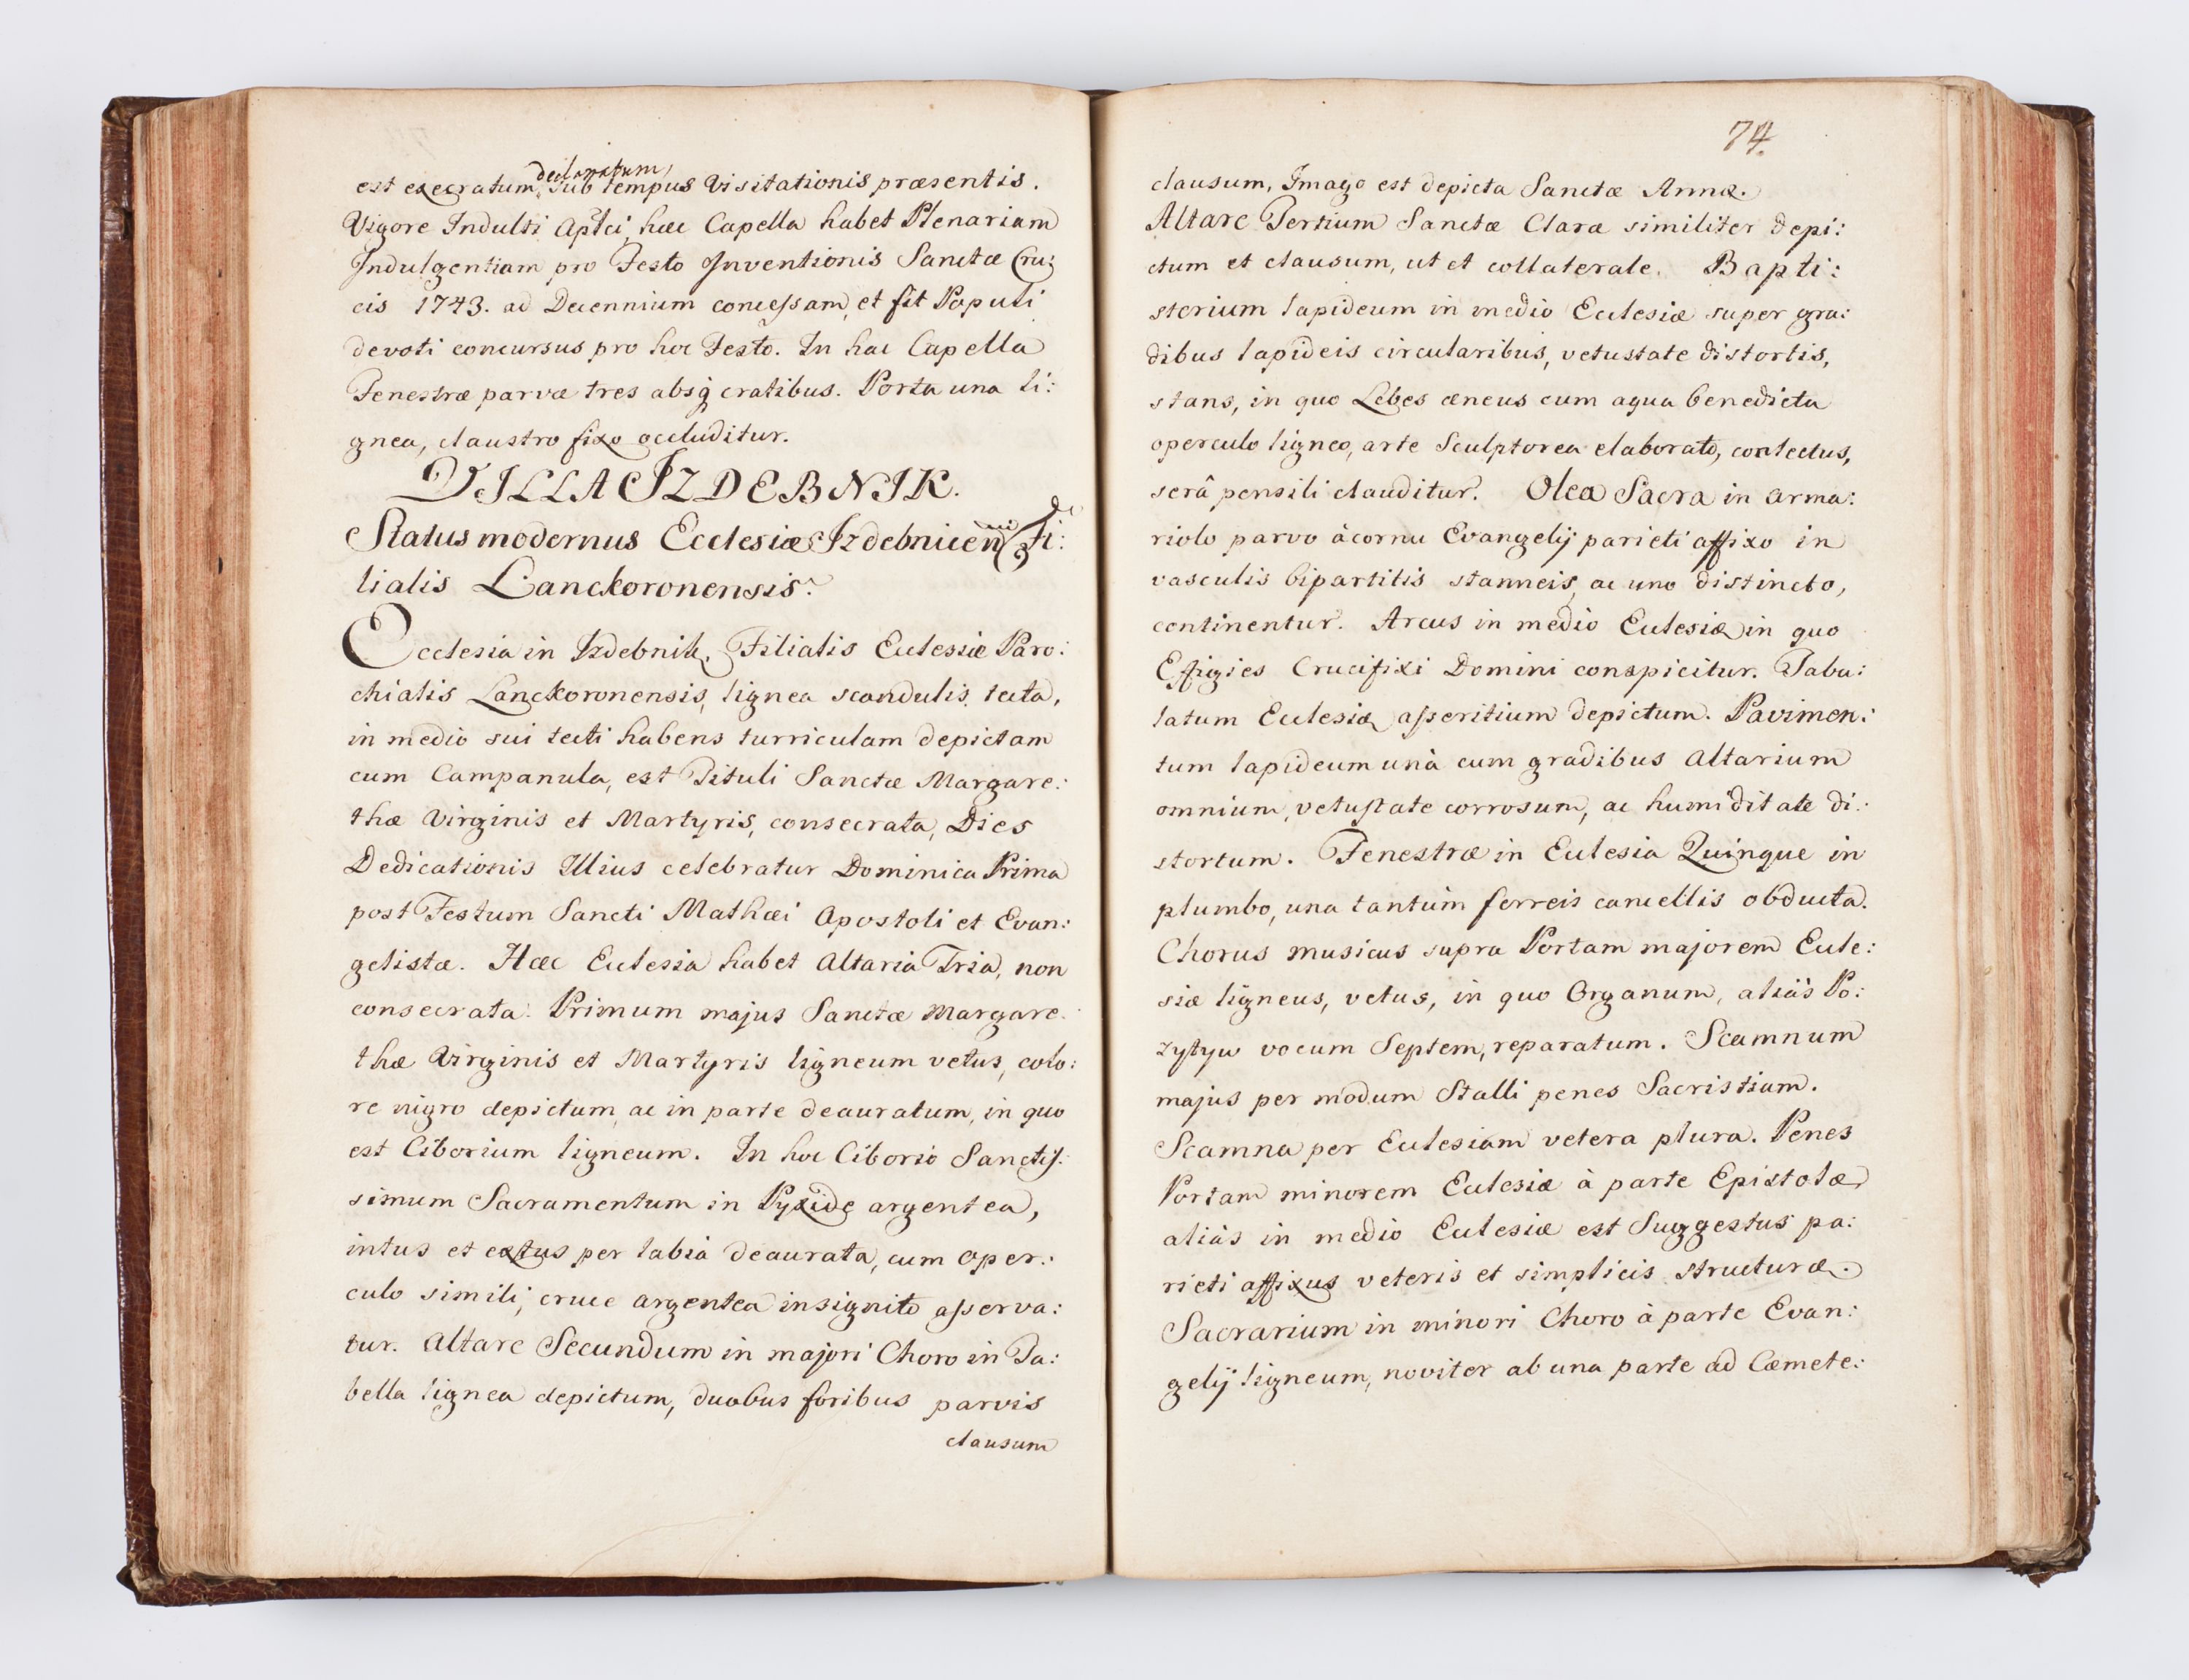 est execratum, declaratum, sub tempus Visitationis præsentis.
Vigore Indulti Aplci, hæc Capella habet Plenariam
Indulgentiam pro Festo Inventionis Sanctæ Cru:
cis 1743. ad Decennium concessam, et fit Populi
devoti concursus pro hoc Festo. In hac Capella
Fenestræ parvæ tres absq cratibus. Porta una li:
gnea, claustro fixo occluditur.
VILLA IZDEBNIK.
Status modernus Ecclesiæ Izdebnicen Fi:
lialis Lanckoronensis.
Ecclesia in Izdebnik, Filialis Ecclesiæ Paro:
chialis Lanckoronensis, lignea scandulis tecta,
in medio sui tecti habens turriculam depictam
cum Campanula, est Tituli Sanctæ Margare:
thæ Virginis et Martyris, consecrata, Dies
Dedicationis Illius celebratur Dominica Prima
post Festum Sancti Mathæi Apostoli et Evan:
gelistæ. Hæc Ecclesia habet Altaria Tria, non
consecrata. Primum majus Sanctæ Margare:
thæ Virginis et Martyris ligneum vetus, colo:
re nigro depictum, ac in parte deauratum, in quo
est Ciborium ligneum. In hoc Ciborio Sanctis:
simum Sacramentum in Pyxide argentea,
intus et extus per labia deaurata, cum oper:
culo simili, cruce argentea insignito asserva:
tur. Altare Secundum in majori Choro in Ta:
bella lignea depictum, duobus foribus parvis
clausum
74.
clausum, Imago est depicta Sanctæ Annæ.
Altare Tertium Sanctæ Claræ similiter depi:
ctum et clausum, ut et collaterale. Bapti:
sterium lapideum in medio Ecclesiæ super gra:
dibus lapideis circularibus, vetustate distortis,
stans, in quo Lebes æneus cum aqua benedicta
operculo ligneo, arte Sculptorea elaborato, contectus,
serâ pensili clauditur. Olea Sacra in arma:
riolo parvo à cornu Evangelij parieti affixo in
vasculis bipartitis stanneis, ac uno distincto,
continentur. Arcus in medio Ecclesiæ in quo
Effigies Crucifixi Domini conspicitur. Tabu:
latum Ecclesiæ asseritium depictum. Pavimen:
tum lapideum unà cum gradibus Altarium
omnium, vetustate corrosum, ac humiditate di:
stortum. Fenestræ in Ecclesia Quinque in
plumbo, una tantùm ferreis cancellis obducta.
Chorus musicus supra Portam majorem Eccle:
siæ ligneus, vetus, in quo Organum, aliàs Po:
zytyw vocum Septem, reparatum. Scamnum
majus per modum Stalli penes Sacristiam.
Scamna per Ecclesiam vetera plura. Penes
Portam minorem Ecclesiæ à parte Epistolæ,
aliàs in medio Ecclesiæ est Suggestus pa:
rieti affixus veteris et simplicis structuræ.
Sacrarium in minori Choro à parte Evan:
gelij ligneum, noviter ab una parte ad Cæmete: